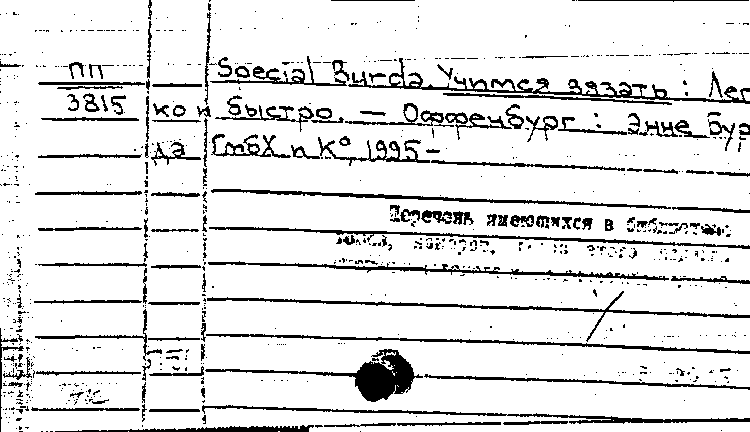 ПП
3815
Special Burda. Учимся вязать : Лег
ко и быстро. — Оффенбург : Энне Бур
да ГмбХ и К°, 1995 –
Перечень имеющихся в библиотеке
томов, номеров, этого